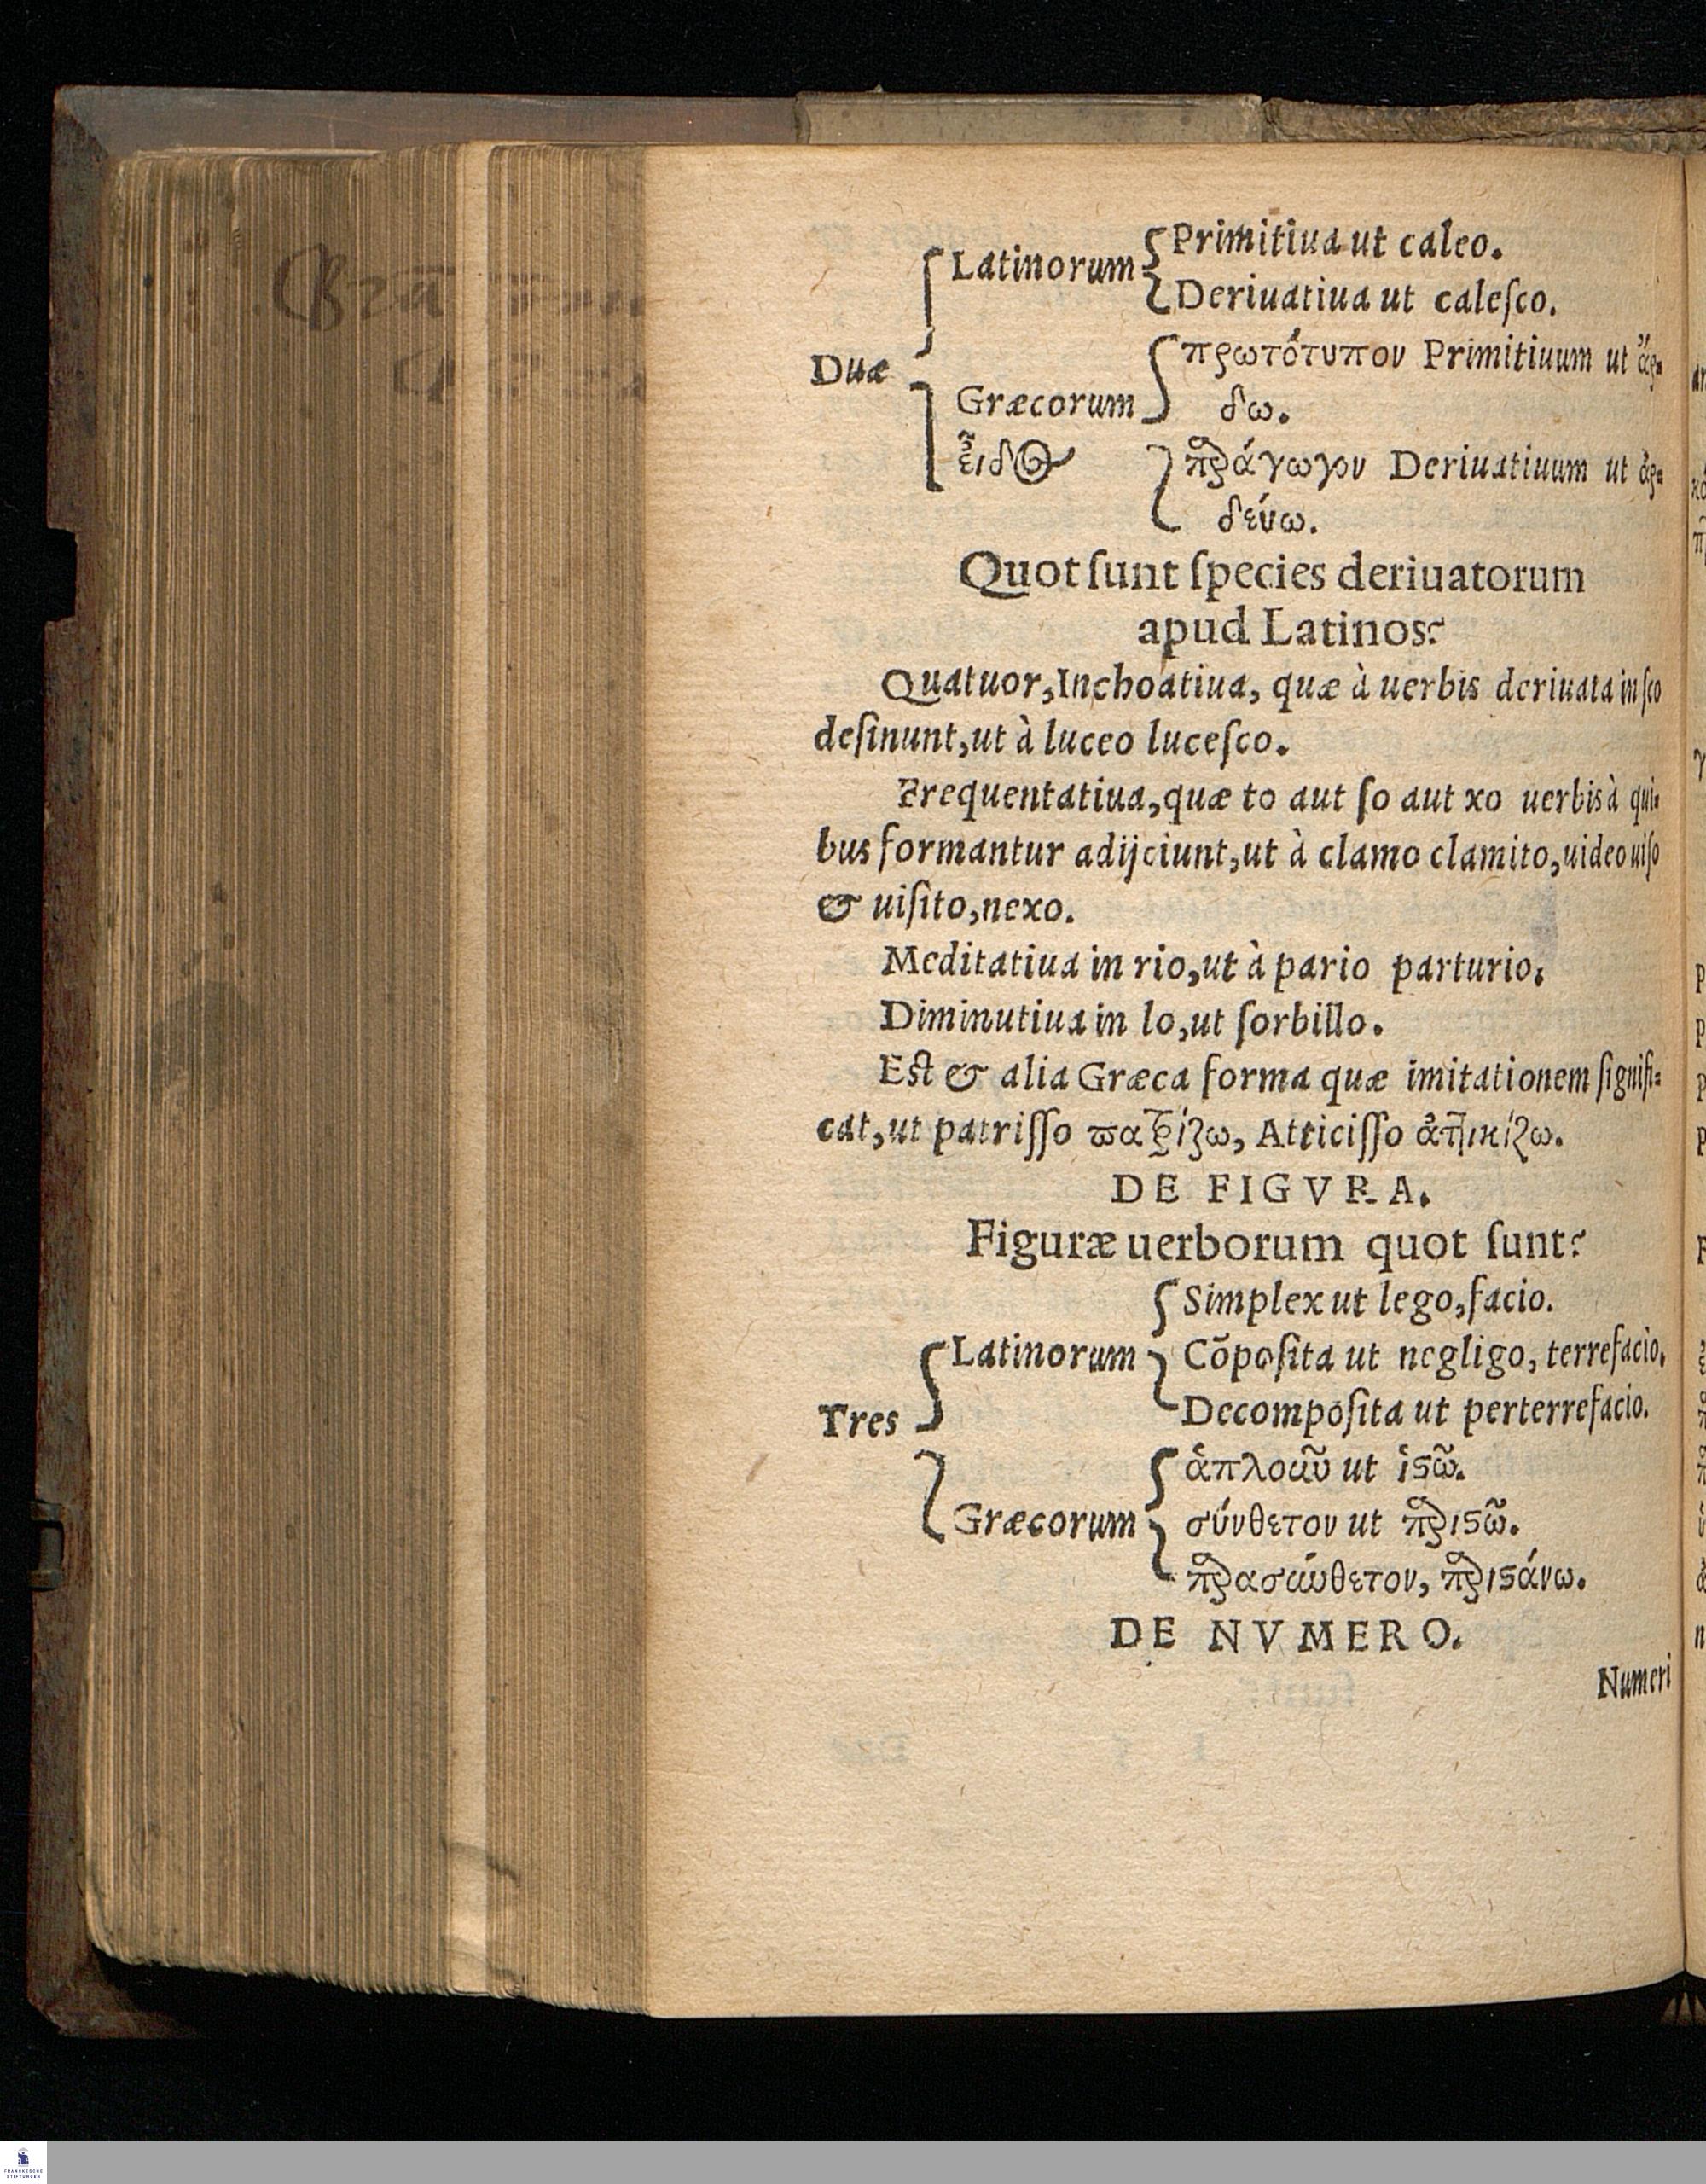 Latinorum Primitiua ut caleo.
Deriuatiua ut caleſco.
Duæ
Græcorum πρωτότυπον Primitiuum ut ἄρ-
δω.
εἶδος παράγωγον Deriuatiuum ut ἀρ-
δεύω.
Quot ſunt ſpecies deriuatorum
apud Latinos?
Quatuor, Inchoatiua, quæ à uerbis deriuata in ſco
deſinunt, ut à luceo luceſco.
Frequentatiua, quæ to aut ſo aut xo uerbis à qui-
bus formantur adijciunt, ut à clamo clamito, uideo uiſo
& uiſito, nexo.
Meditatiua in rio, ut à pario parturio.
Diminutiua in lo, ut ſorbillo.
Eſt & alia Græca forma quæ imitationem ſignifi-
cat, ut patriſſo πατρίζω, Atticiſſo ἀττικίζω.
DE FIGVRA.
Figuræ uerborum quot ſunt?
Simplex ut lego, facio.
Latinorum Cõpoſita ut negligo, terrefacio,
Decompoſita ut perterrefacio.
Tres
ἁπλοῦν ut ἱστῶ.
Græcorum σύνθετον ut παριστῶ.
παρασύνθετον, παριστάνω.
DE NVMERO.
Numeri
FRANCKESCHE
STIFTUNGEN